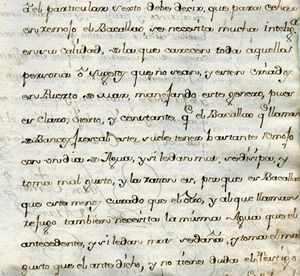 el particular, y esto debe decir, que para echar
en remojo el Bacallao se necesita mucha intelig.
en su calidad, de la que carecen todas aquellas
personas ó sugetos que no sean, y esten criados
en Puerto de Mar, manejando este genero, pues
es claro, cierto, y constante, q.e el Bacallao q.e llaman
de Banco, y frescal este, suele tener bastante remojo
con un dia de Agua, y si le dan mas, se disipa, y
toma mal gusto, y la razon es, porque es Bacallao
que esta menos curado que el otro, y al que llaman
refugo tambien necesita la misma Agua que el
antecedente, y si le dan mas se daña, y toma el mal
gusto que el ante dicho, y no tiene duda el Testigo